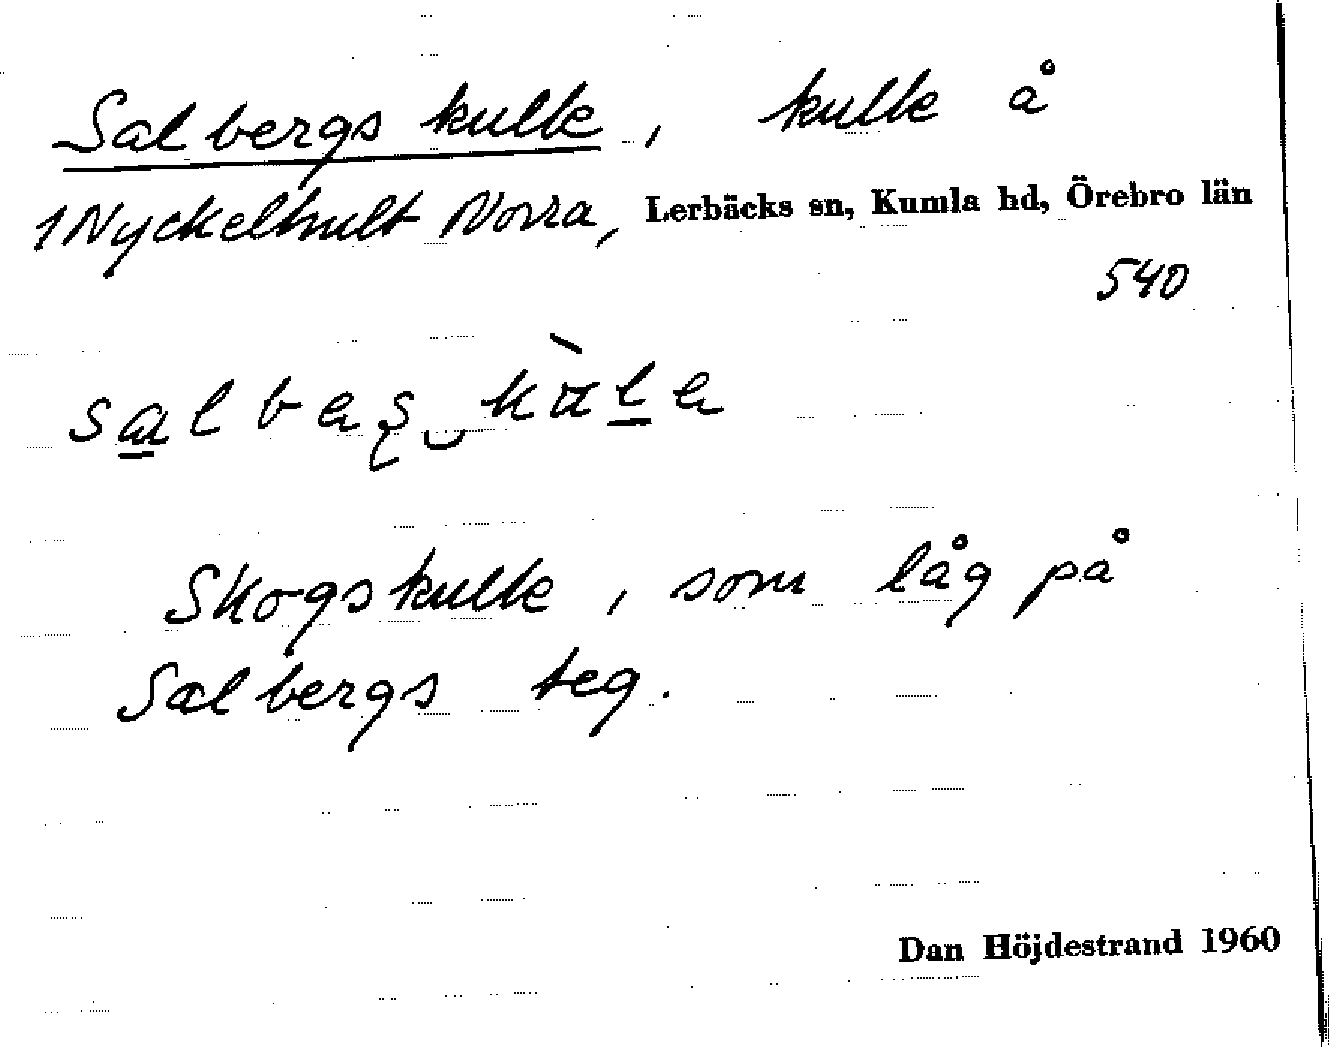 Salbergs kulle, kulle å
1 Nyckelhult Norra, Lerbäcks sn, Kumla hd, Örebro län
540
Skogskulle, som låg på
Salbergs teg.
Dan Höjdestrand 1960